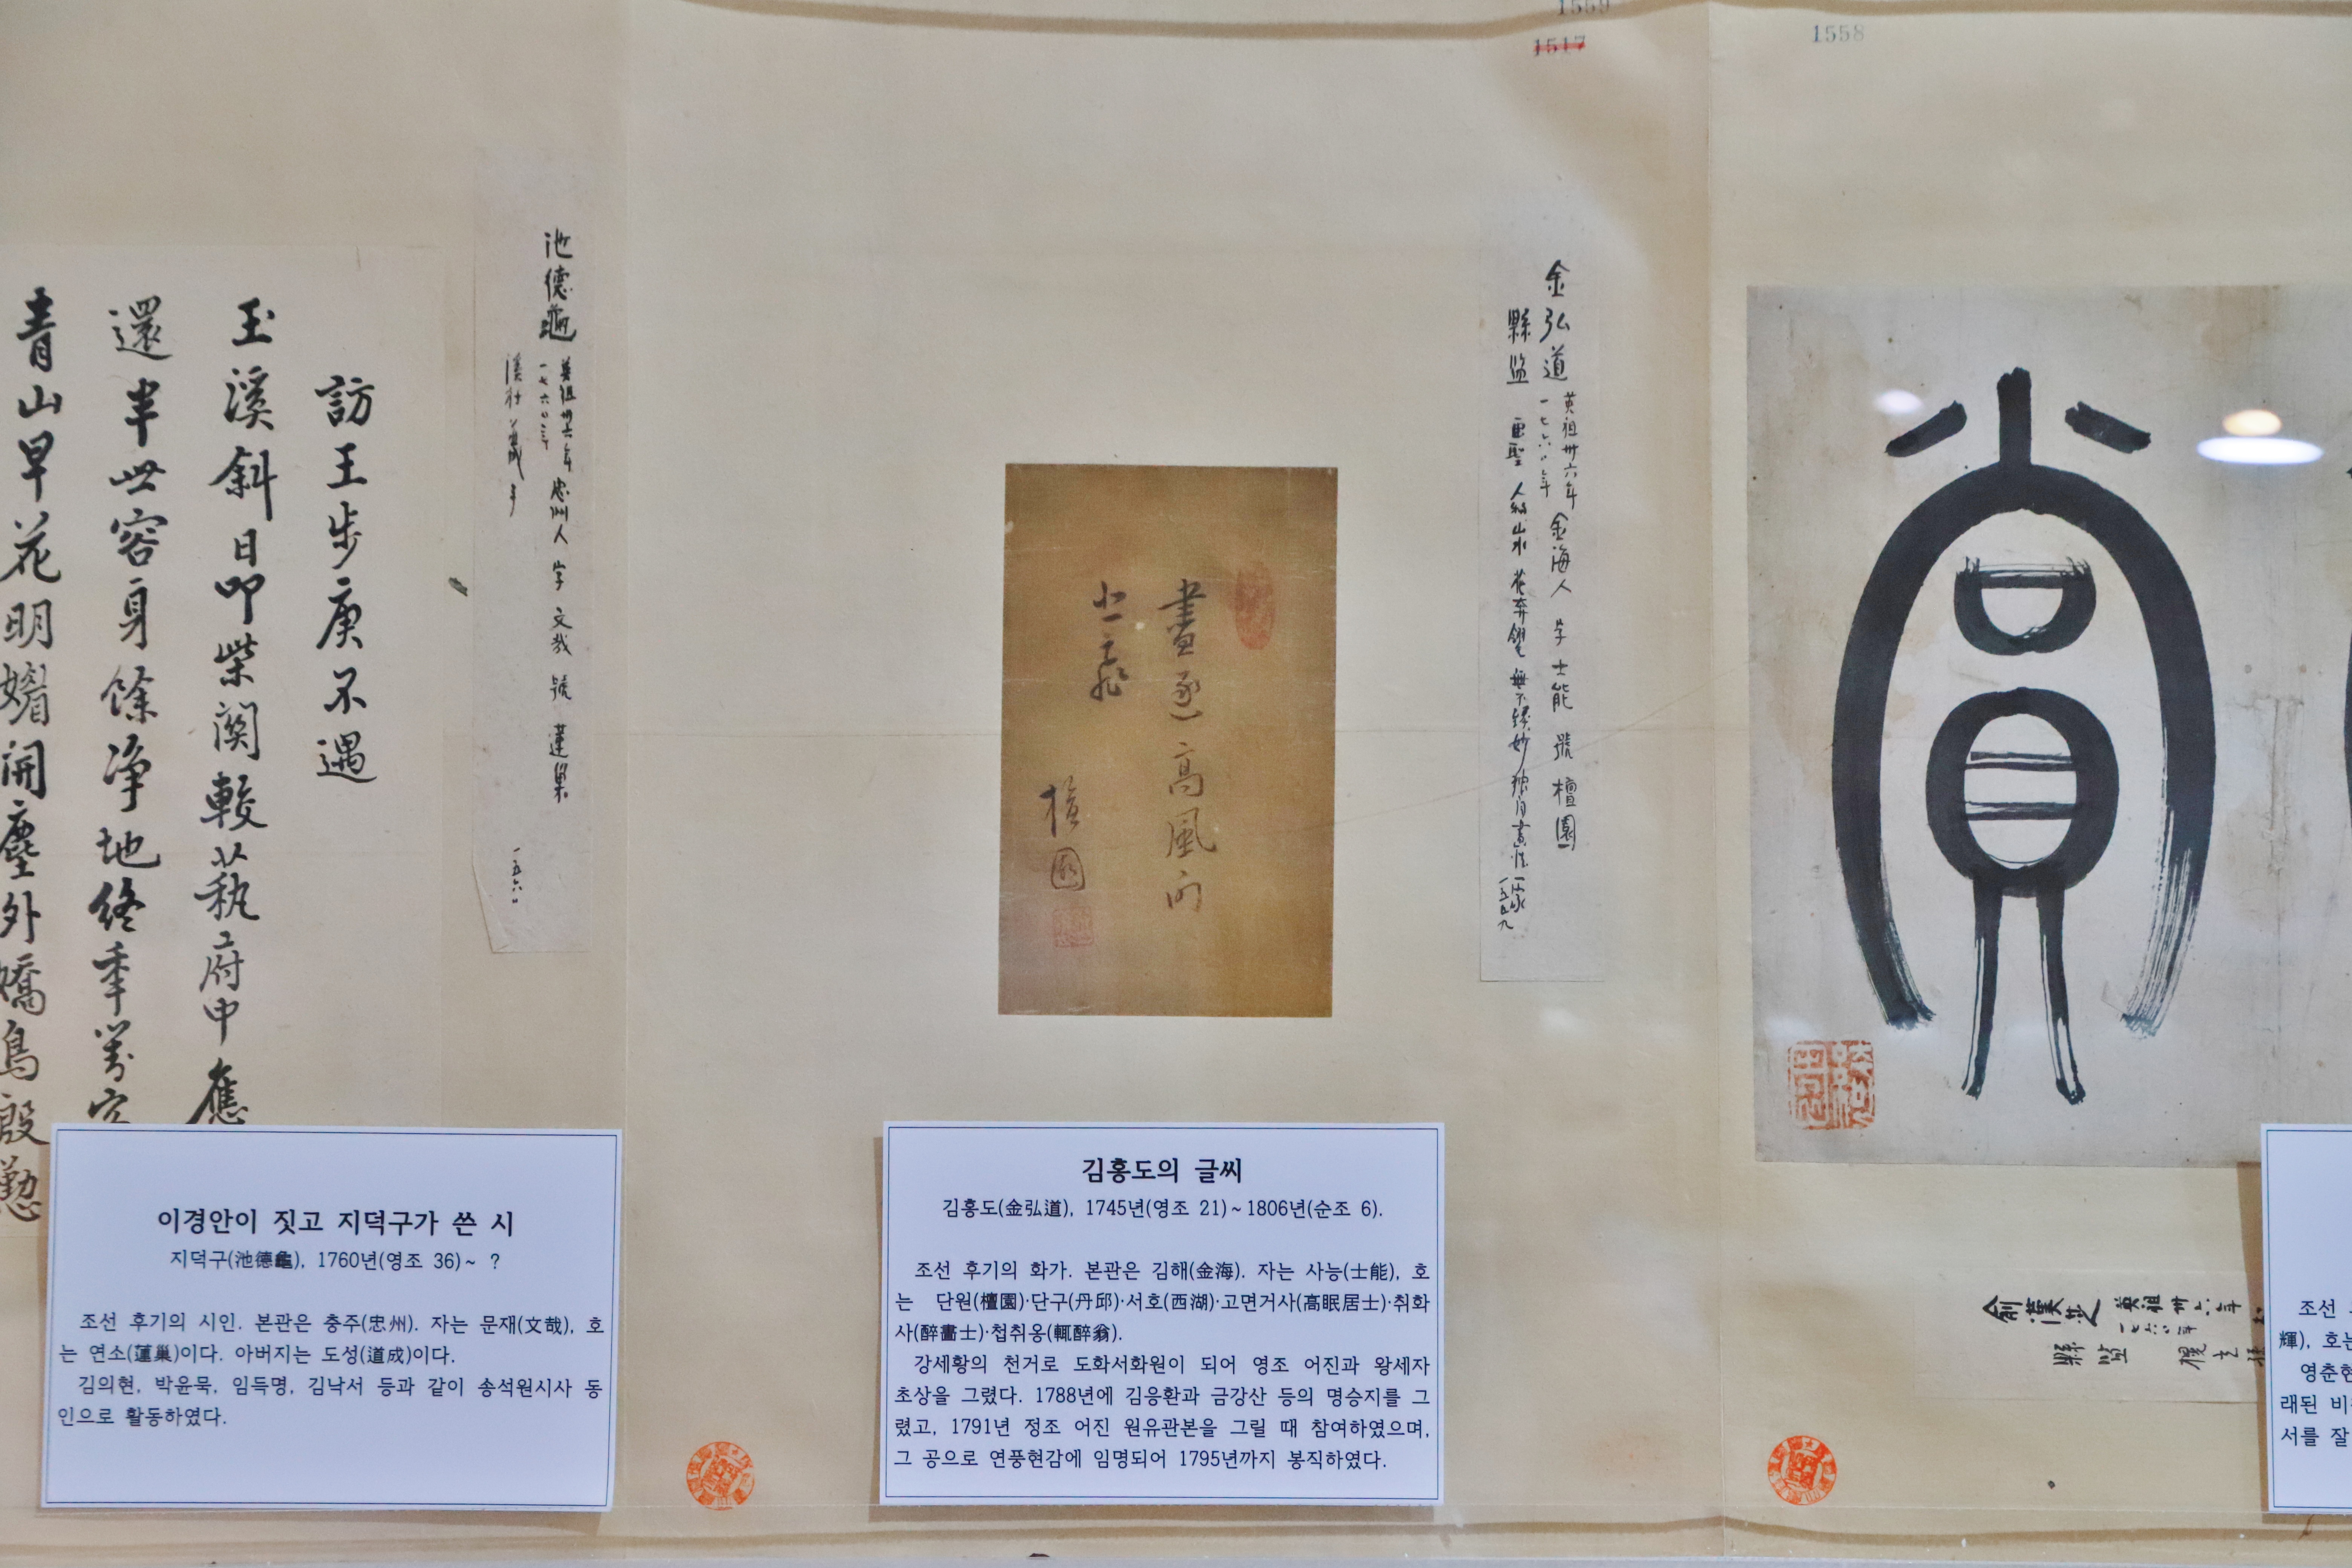 1559
1517
1558
訪王步庚不遇
玉溪斜日叩柴関較蓺府中應
還半世容身餘净地終年
青山早花明媚開塵外嬌鳥殷懃
池德龜
英祖卅六年 忠州人 字 文哉 號 蓮巢
一七六〇年
溪社
一五六〇
畫 高風向
檀園
金弘道 英祖卅六年 金海人 字 士能 號 檀園
一七六〇年
縣监 畫聖 人物 山水 花卉 無不 妙
一五五九
兪漢芝 英祖卅六年
一七六〇年
縣監
이경안이 짓고 지덕구가 쓴 시
지덕구(池德龜), 1760년(영조 36)~ ?
조선 후기의 시인. 본관은 충주(忠州). 자는 문재(文哉), 호
는 연소(蓮巢)이다. 아버지는 도성(道成)이다.
김의현, 박윤묵, 임득명, 김낙서 등과 같이 송석원시사 동
인으로 활동하였다.
김홍도의 글씨
김홍도(金弘道), 1745년(영조 21)~1806년(순조 6).
조선 후기의 화가. 본관은 김해(金海). 자는 사능(士能), 호
는 단원(檀園)·단구(丹邱)·서호(西湖)·고면거사(高眠居士)·취화
사(醉畵士)·첩취옹(輒醉翁).
강세황의 천거로 도화서화원이 되어 영조 어진과 왕세자
초상을 그렸다. 1788년에 김응환과 금강산 등의 명승지를 그
렸고, 1791년 정조 어진 원유관본을 그릴 때 참여하였으며,
그 공으로 연풍현감에 임명되어 1795년까지 봉직하였다.
조선
輝), 호는
영춘현
래된 비
서를 잘